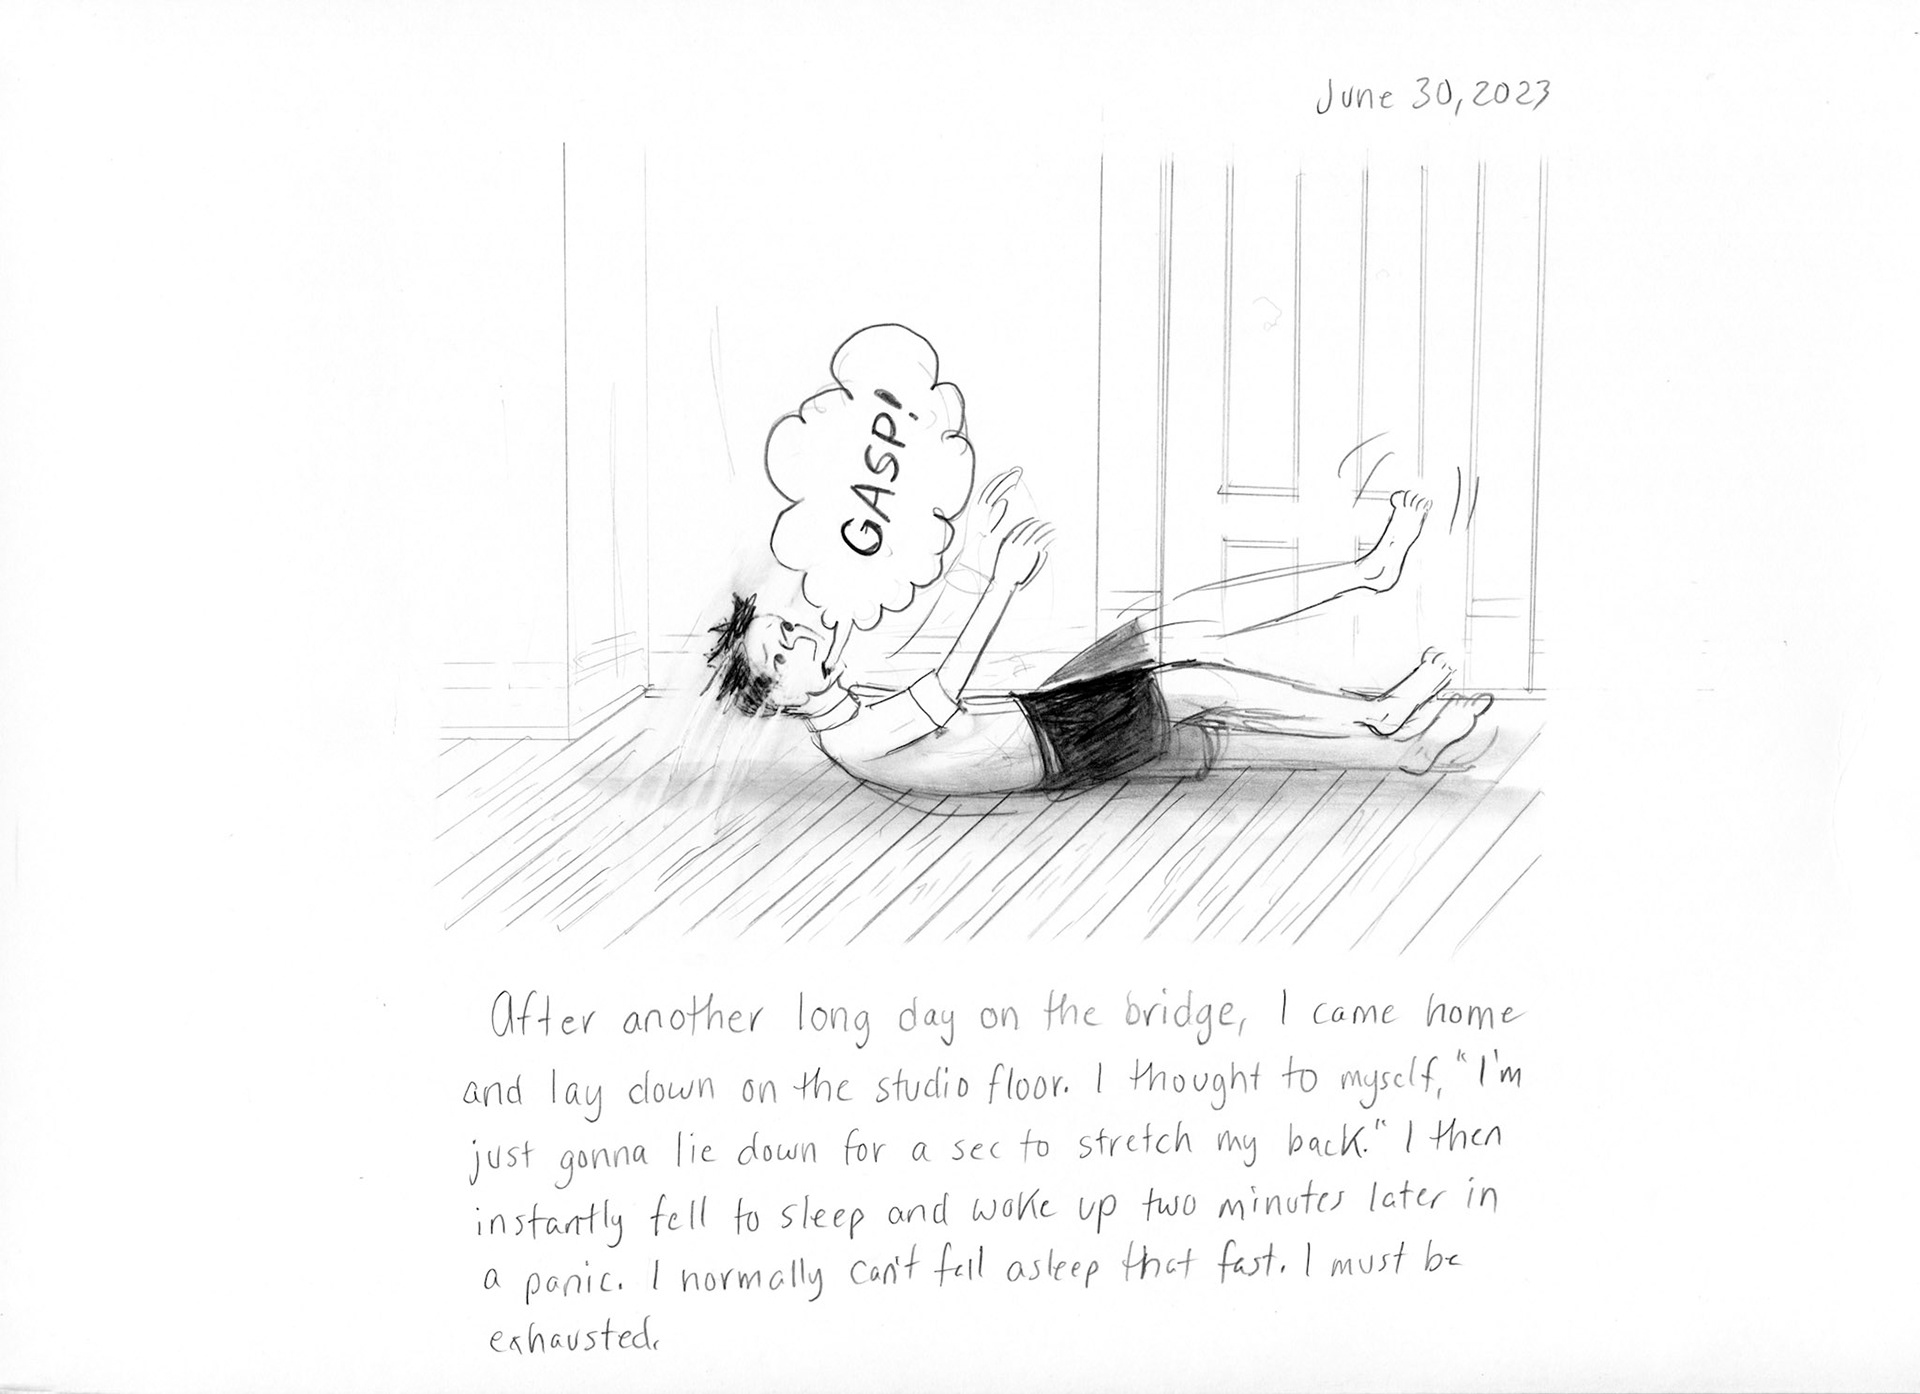 June 30, 2023
GASP!
After another long day on the bridge, I came home
and lay down on the studio floor. I thought to myself, "I'm
just gonna lie down for a sec to stretch my back." I then
instantly fell to sleep and woke up two minutes later in
a panic. I normally can't fall asleep that fast. I must be
exhausted.